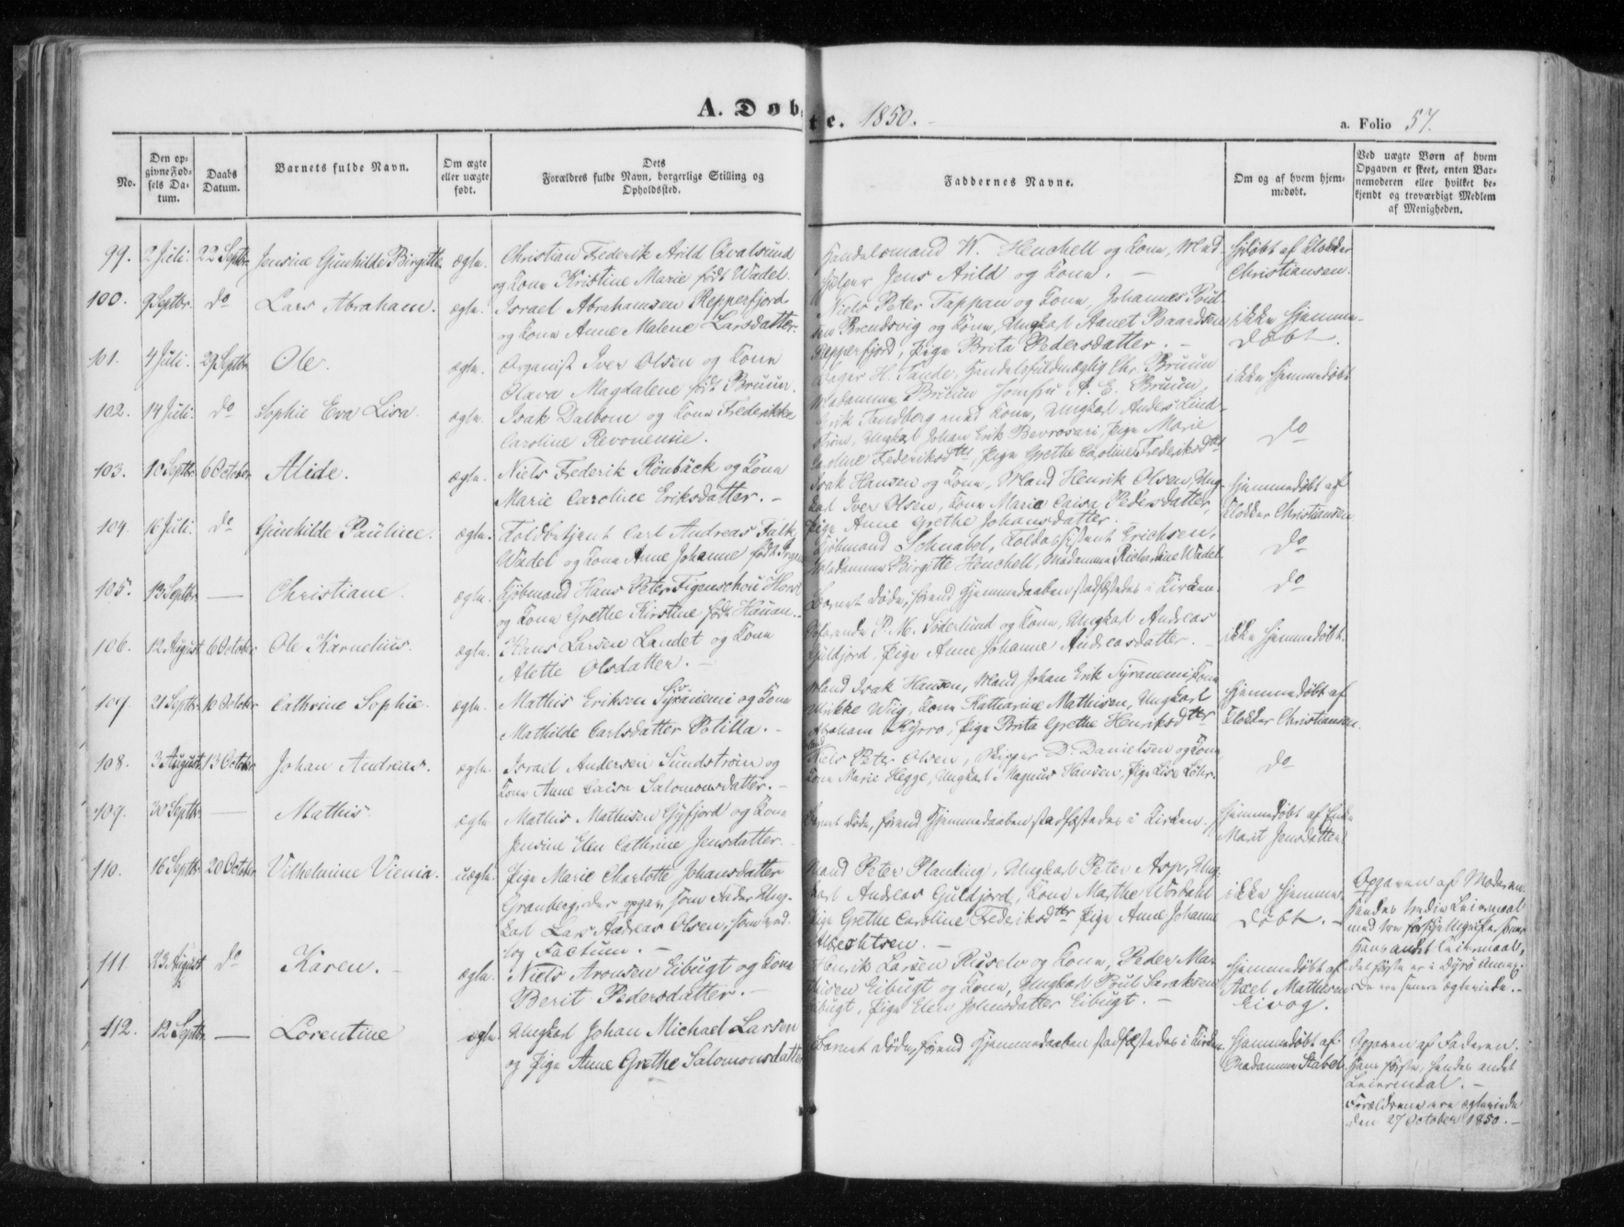 A. Døbte. 1850.
a. Folio 57.
No.
Den opgivne Fødsels Datum.
Daabs Datum.
Barnets fulde Navn.
Om ægte eller uægte født.
Dets Forældres fulde Navn, borgerlige Stilling og Opholdssted.
Faddernes Navne.
Om og af hvem hjemmedøbt.
Ved uægte Børn af hvem Opgaven er skeet, enten Barnemoderen eller hvilket bekjendt og troværdigt Medlem af Menigheden.
99. 2 Juli. 22 Septbr. Jensine Gunhilde Birgitte. ægte. Christian Frederik Arild Qvalsund
og Kone Kristine Marie født Wadel.
Handelsmand W. Henchell og Kone,
Jens Arild og Kone. —
Hjdøbt af Klokker
Christiansen.
100. 9 Septbr. do Lars Abraham. ægte. Israel Abrahamsen Repperfjord
og Kone Anne Malene Larsdatter.
Niels Peter Tappan og Kone, Johannes Poul-
sen og Kone, Ungkarl Aanet Baardsen
Repperfjord, Pige Brita Pedersdatter. —
ikke hjemme-
døbt.
101. 4 Juli. 29 Septbr. Ole. ægte. Organist Iver Olsen og Kone
Olava Magdalene født Bruun.
H. Tande, Handelsfuldmægtig Chr. Bruun
Madamme Bruun Jomfru A. E. Bruun,
ikke hjemmedøbt
102. 14 Juli. do Sophie Eva Lisa. ægte. Isak Dalbom og Kone Frederikke
Caroline
Erik Sandberg med Kone, Ungkarl Anders Lind-
strøm, Ungkarl Johan Erik Pige Marie
Caroline Frederiksdtr, Pige Grethe Caroline Frederiksdtr
do
103. 10 Septbr. 6 October Alide. ægte. Niels Frederik Rönbäck og Kone
Marie Caroline Eriksdatter. —
Isak Hansen og Kone, Mand Henrik Olsen, Ung-
karl Iver Olsen, Kone Maria Caisa Pedersdatter,
Pige Anne Grethe Johansdatter.
Hjemmedøbt af
Klokker Christiansen
104. 16 Juli. do Gunhilde Pauline. ægte. Toldbetjent Carl Andreas Falk
Wadel og Kone Anne Johanne født
Kjøbmand Schnabel, Toldassistent Erichsen,
Madamme Birgitte Henchell, Madamme Wadel
do
105. 13 Septbr. — Christiane. ægte. Kjøbmand Hans Peter Figenschou
og Kone Grethe Kirstine født Hauan.
Barnet døde, førend Hjemmedaaben stadfæstedes i Kirken.
do
106. 12 August 6 October Ole Karnelius. ægte. Hans Larsen Landet og Kone
Alette Olsdatter. —
P. M. Söderlund og Kone, Ungkarl Andreas
Guldjord, Pige Anne Johanne Andreasdatter. —
ikke hjemmedøbt.
107. 21 Septbr. 10 October Cathrine Sophie. ægte. Mathis Eriksen og Kone
Mathilde Carlsdatter —
Mand Isak Hansen, Mand Johan Erik Kone
Ulrikke Wiig, Kone Katharine Mathisen, Ungkarl
Abraham Kyrro, Pige Brita Grethe Henriksdtr
Hjemmedøbt af
Klokker Christiansen.
108. 3 August 13 October Johan Andreas. ægte. Israel Andersen Sundström og
Kone Anne Caisa Salomonsdatter. —
Niels Peter Olsen, Skipper D. Danielsen og Kone
Kone Marie Hegge, Ungkarl Magnus Hansen, Pige Lise Löhr.
do
109. 30 Septbr. — Mathis ægte Mathis Mathisen Gyfjord og Kone
Jensine Elen Cathrine Jensdatter.
Barnet døde, førend Hjemmedaaben stadfæstedes i Kirken.
Hjemmedøbt af
Marit Jensdatter.
110. 16 Septbr. 20 October Vilhelmine Vienia. uægte. Pige Marie Charlotte Johansdatter
Granberg, der opgav som Fader Ung-
karl Lars Andreas Olsen,
Factum. —
Mand Peter Planting, Ungkarl Peter Asp, Ung-
karl Andreas Guldjord, Kone Marthe
Pige Grethe Caroline Frederiksdtr Pige Anne Johanne
Albrechtsen. —
ikke hjemme-
døbt. —
Opgaven af Moderen.
Hendes tredie Leiermaal
111. 23 August do Karen. — ægte. Niels Aronsen Eibugt og Kone
Berit Pedersdatter. —
Henrik Larsen og Kone, Peder Ma-
thisen Eibugt og Kone, Ungkarl Poul Isaksen
Eibugt, Pige Elen Johnsdatter Eibugt. —
Hjemmedøbt af
Axel Mathisen
112. 12 Septbr. — Lorentine ægte. Ungkarl Johan Michael Larsen
og Pige Anne Grethe Salomonsdatter
Barnet døde, førend Hjemmedaaben stadfæstedes i Kirken.
Hjemmedøbt af
Madamme Stabel.
Opgaven af Faderen.
Hans første, hendes andet
Leiermaal. —
Forældrene ere ægteviede
den 27 October 1850. —